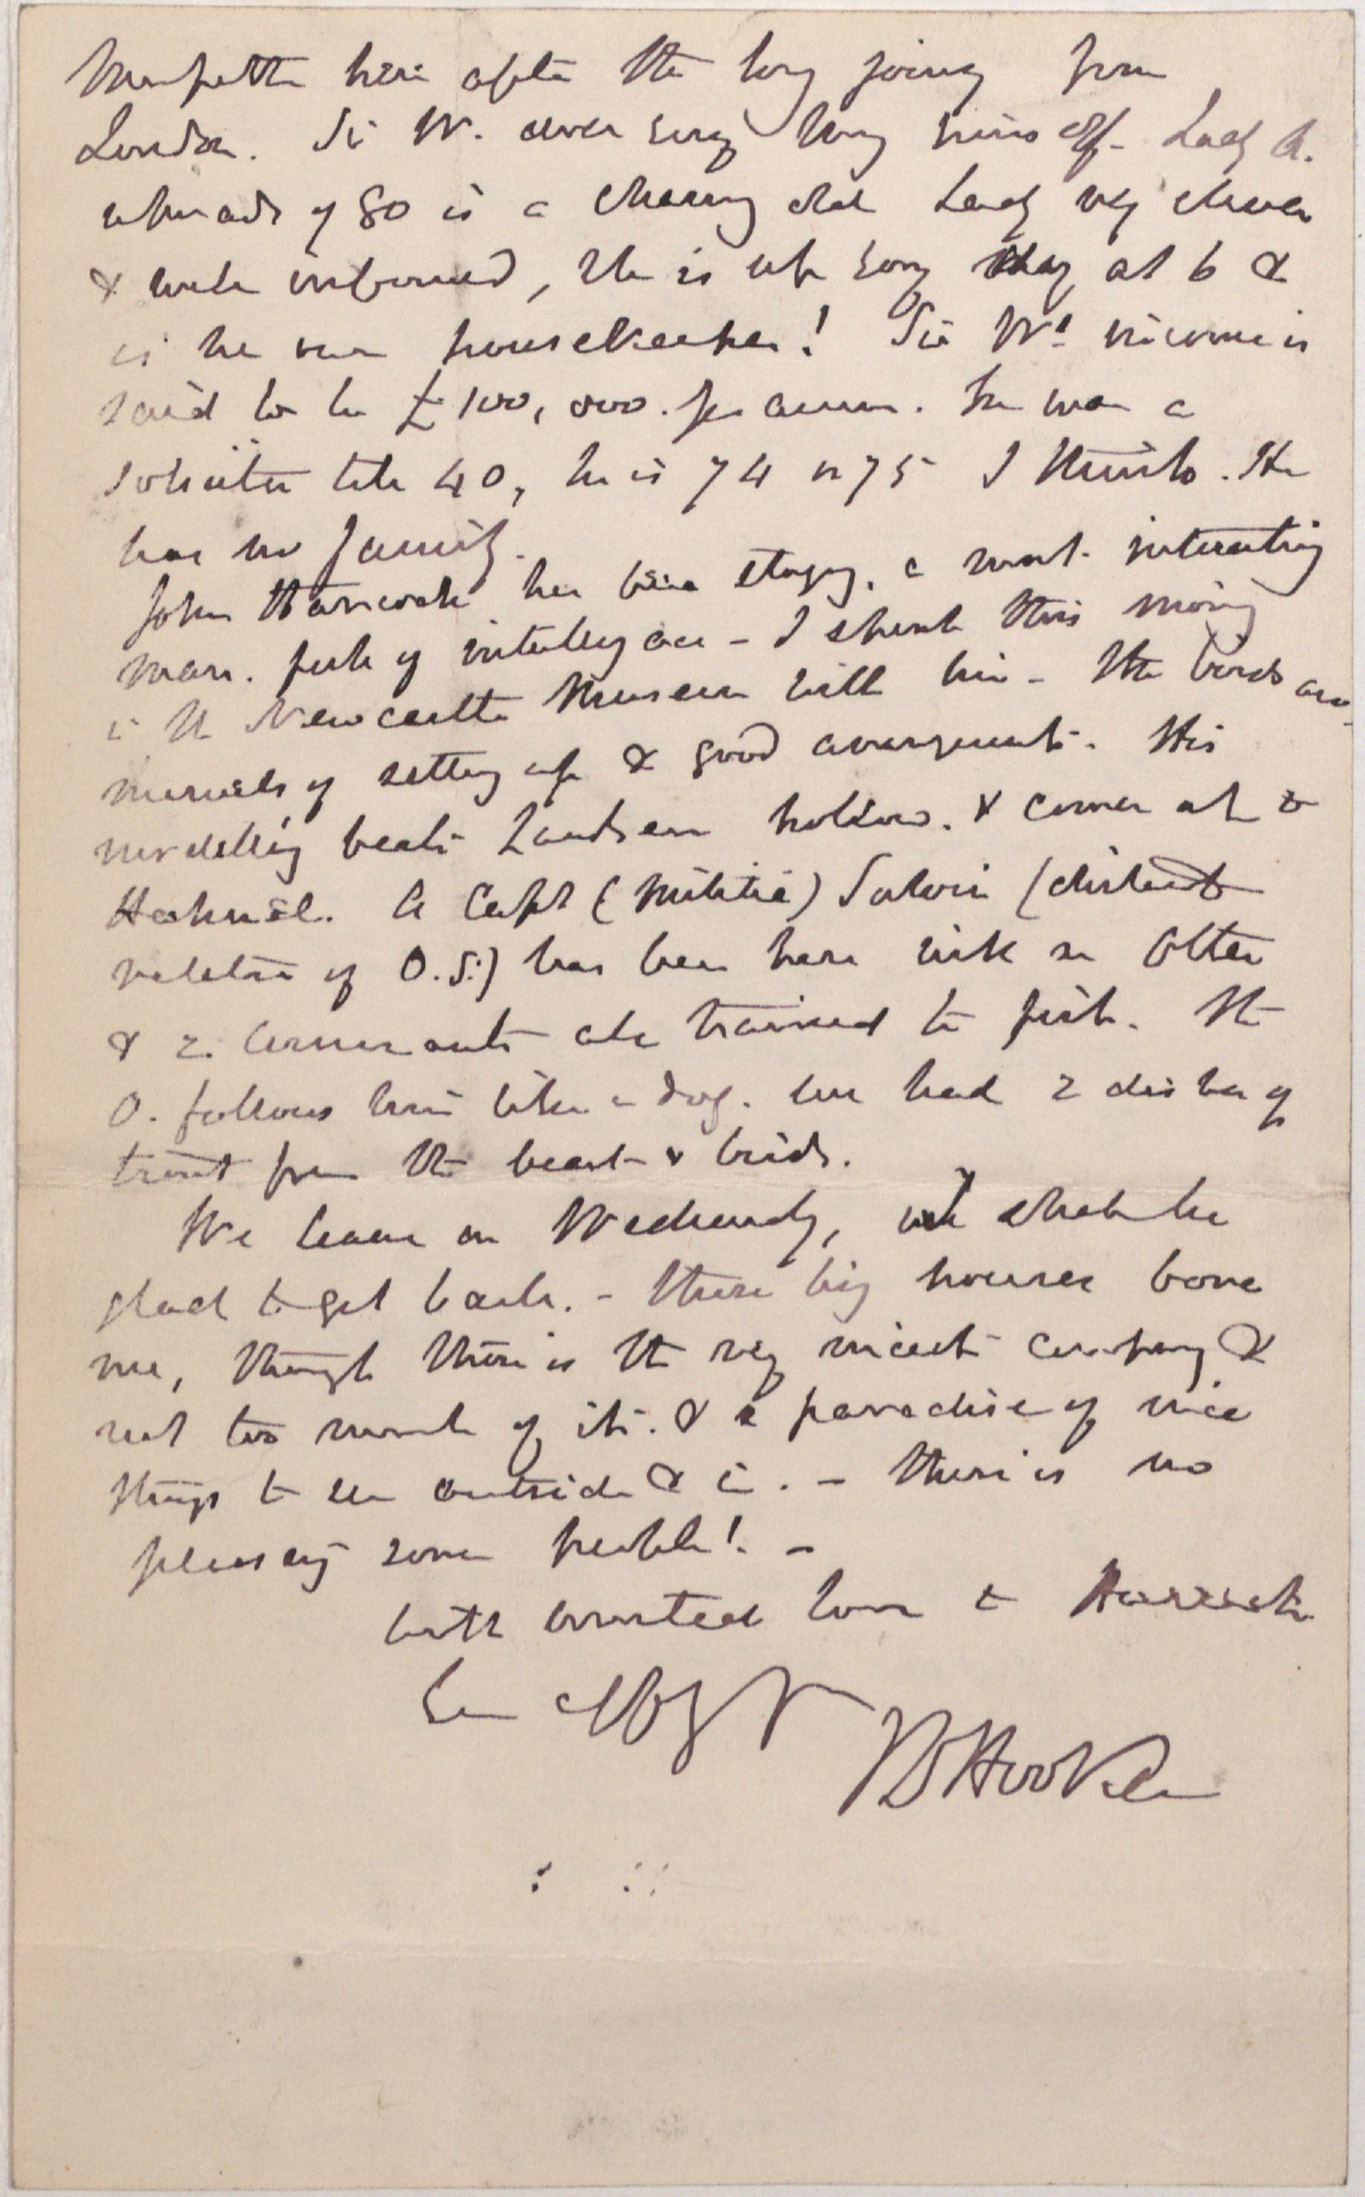 Morpeth here after the long journey from
London. Sir W. does every thing himself. Lady A.
upwards of 80 is a charming old Lady very clever
& well informed, she is up every day at 6 &
is her own housekeeper! Sir Ws. income is
said to be £100,000. per annum. he was a
solicitor till 40, he is 74 or 75 I think. He
has no family.
John Hancock has been staying, a most interesting
man. full of intelligence – I spent this morning
in the Newcastle Museum with him – The birds are
marvels of setting up & good arrangement. His
modelling beats Landseer hollow. & comes up to
Heckmel. A Capt (Militia) Salvin (distant
relation of O.S.) has been here with an Otter
& 2. Cormorants all trained to fish. The
O. follows him like a dog. we had 2 dishes of
trout from the beast & birds.
We leave on Wednesday, & shall be
glad to get back. – these big houses bore
me, though there is the very nicest company &
not too much of it. & a paradise of nice
things to see outside & in. – there is no
pleasing some people! –
with united love to Harriet
Ever affy Yrs
JD Hooker